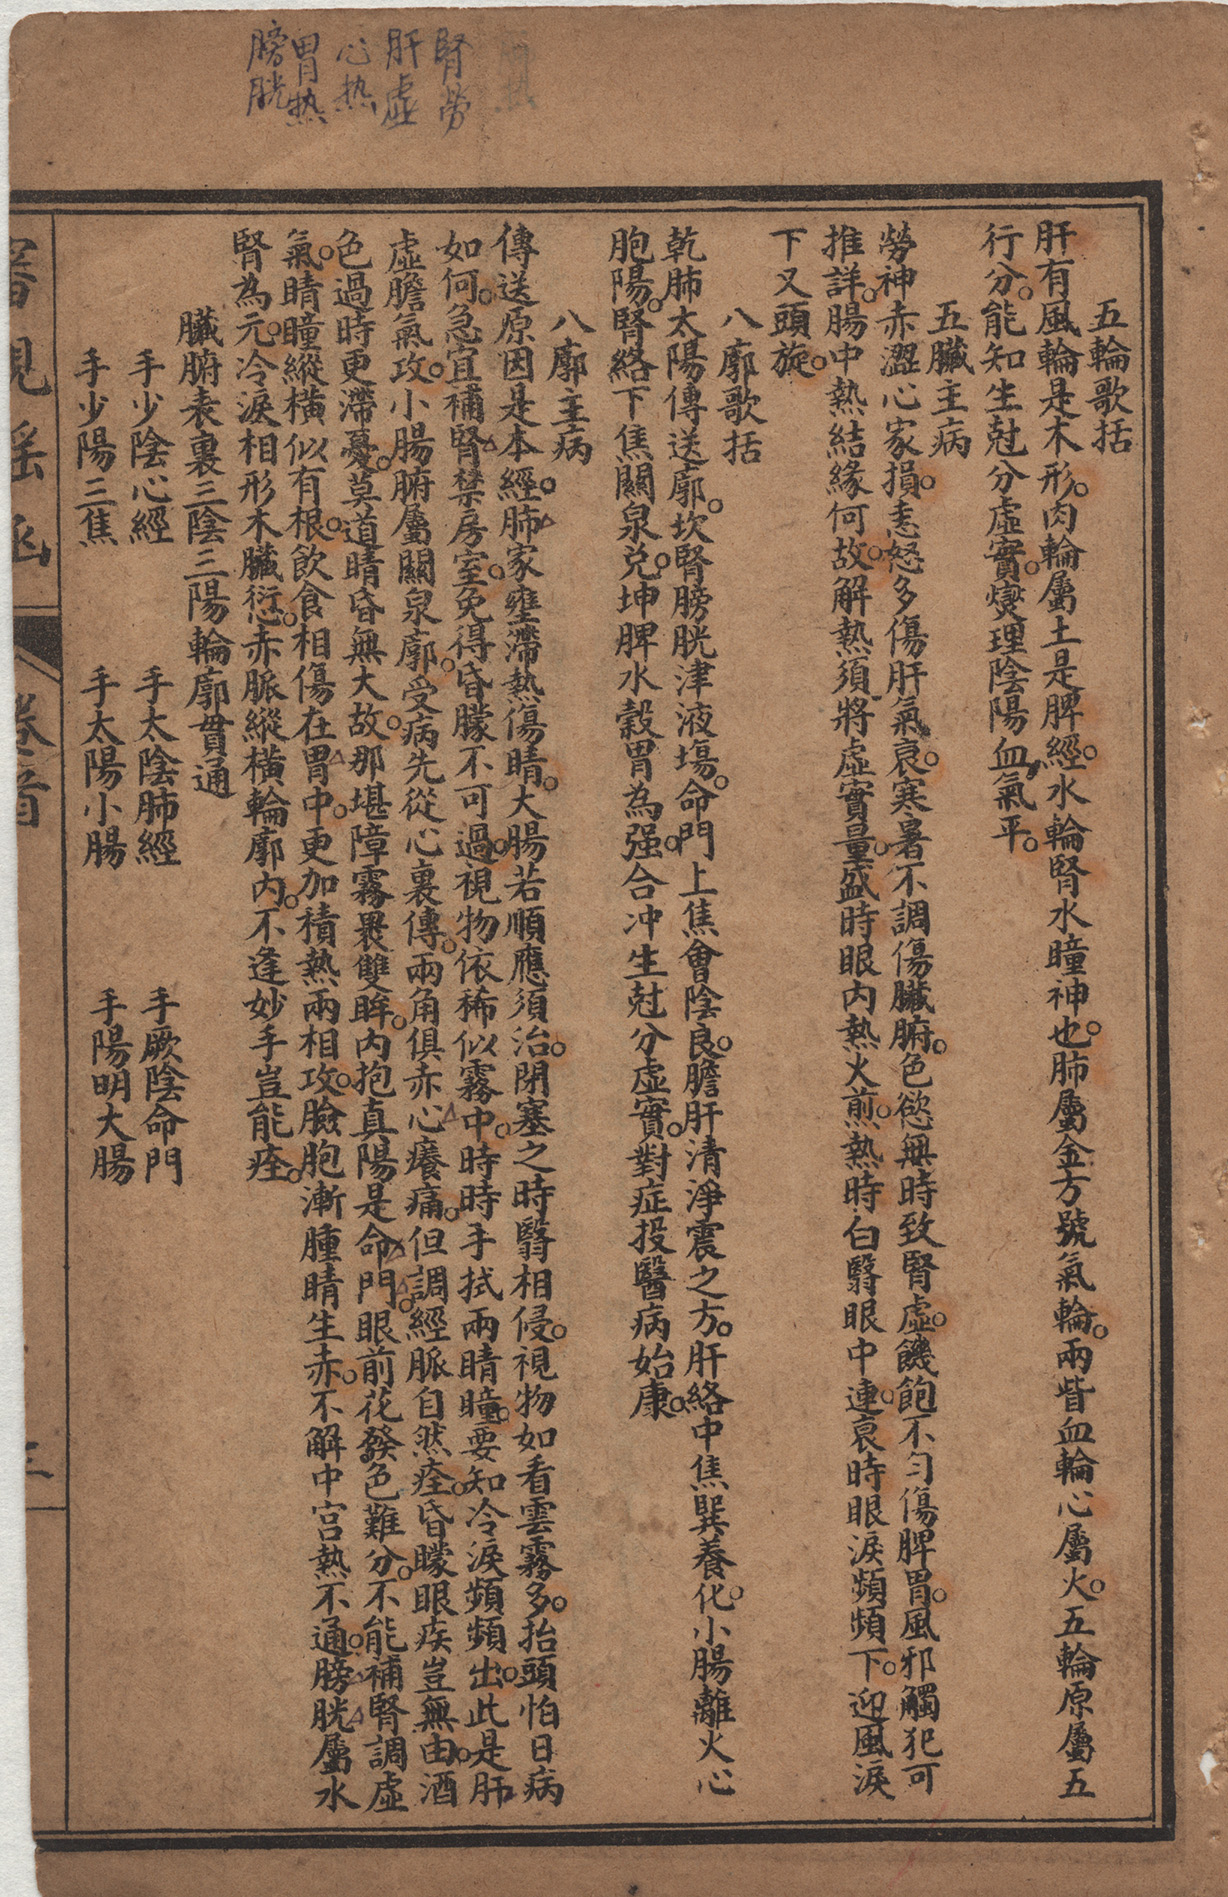 肝虛
腎勞
心热
胃热
膀胱
五輪歌括
肝有風輪是木形。肉輪屬土是脾經。水輪腎水瞳神也。肺屬金方號氣輪。兩眥血輪心屬火。五輪原屬五
行分。能知生尅分虛實。燮理陰陽血氣平。
五臟主病
勞神赤澀心家損。恚怒多傷肝氣哀。寒暑不調傷臟腑。色慾無時致腎虛。饑飽不勻傷脾胃。風邪觸犯可
推詳。腸中熱結緣何故。解熱須將虛實量。盛時眼內熱火煎。熱時白翳眼中連。哀時眼淚頻頻下。迎風淚
下又頭旋。
八廓歌括
乾肺太陽傳送廓。坎腎膀胱津液塲。命門上焦會陰良。膽肝清淨震之方。肝絡中焦巽養化。小腸離火心
胞陽。腎絡下焦關泉兌。坤脾水穀胃為强。合冲生尅分虛實。對症投醫病始康。
八廓主病
傳送原因是本經。肺家壅滯熱傷睛。大腸若順應須治。閉塞之時翳相侵。視物如看雲霧多。抬頭怕日病
如何。急宜補腎禁房室。免得昏矇不可過。視物依稀似霧中。時時手拭兩睛瞳。要知冷淚頻頻出。此是肝
虛膽氣攻。小腸腑屬關泉廓。受病先從心裏傳。兩角俱赤心癢痛。但調經脈自然痊。昏矇眼疾豈無由。酒
色過時更滯憂。莫道睛昏無大故。那堪障霧裹雙眸。內抱真陽是命門。眼前花發色難分。不能補腎調虛
氣。睛瞳縱橫似有根。飲食相傷在胃中。更加積熱兩相攻。臉胞漸腫睛生赤。不解中宫熱不通。膀胱屬水
腎為元。冷淚相形木臟衍。赤脈縱橫輪廓內。不逢妙手豈能痊。
臟腑表裏三陰三陽輪廓貫通
手少陰心經　手太陰肺經　手厥陰命門
手少陽三焦　手太陽小腸　手陽明大腸
審視瑤函　卷首　三